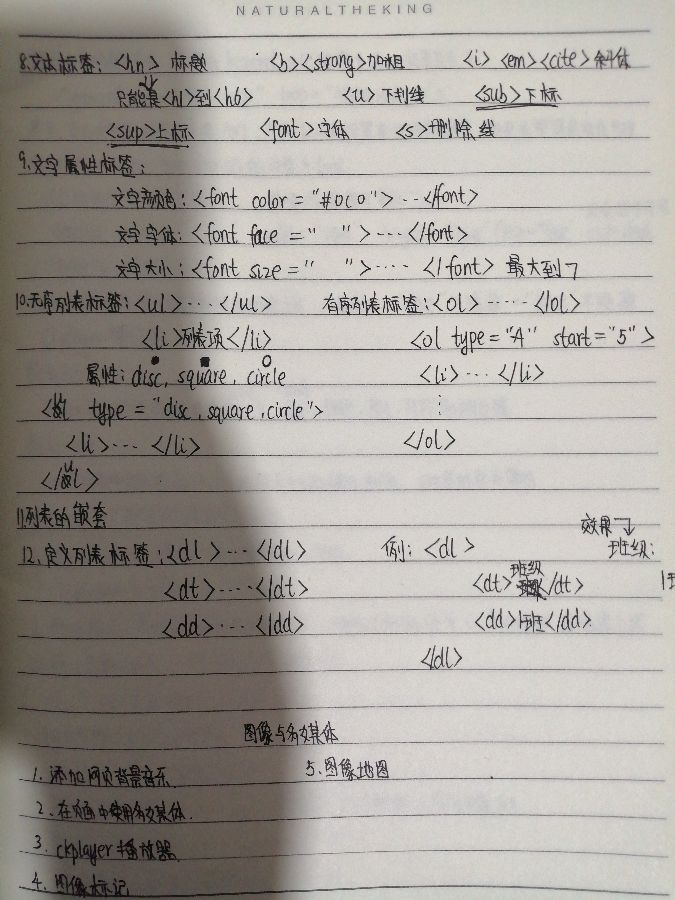 NATURALTHEKING
8.文本标签：<hn> 标题 <b><strong>加粗 <i> <em><cite>斜体
只能是<h1>到<h6> <u>下划线 <sub>下标
<sup>上标 <font>字体 <s>删除线
9.文字属性标签：
文字颜色：<font color="#0c0">…</font>
文字字体：<font face=" ">…</font>
文字大小：<font size=" ">…</font> 最大到7
10.无序列表标签：<ul>…</ul> 有序列表标签：<ol>……</ol>
<li>列表项</li> <ol type="A" start="5">
属性：disc, square, circle <li>…</li>
<ul type="disc,square,circle"> ⋮
<li>…</li> </ol>
</ul>
11.列表的嵌套
效果
12.定义列表标签：<dl>…</dl> 例：<dl> 班级：
<dt>…</dt> <dt>班级</dt>
<dd>…</dd> <dd>1班</dd>
</dl>
图像与多媒体
1.添加网页背景音乐 5.图像地图
2.在页面中使用多媒体.
3.ckplayer播放器
4.图像标记